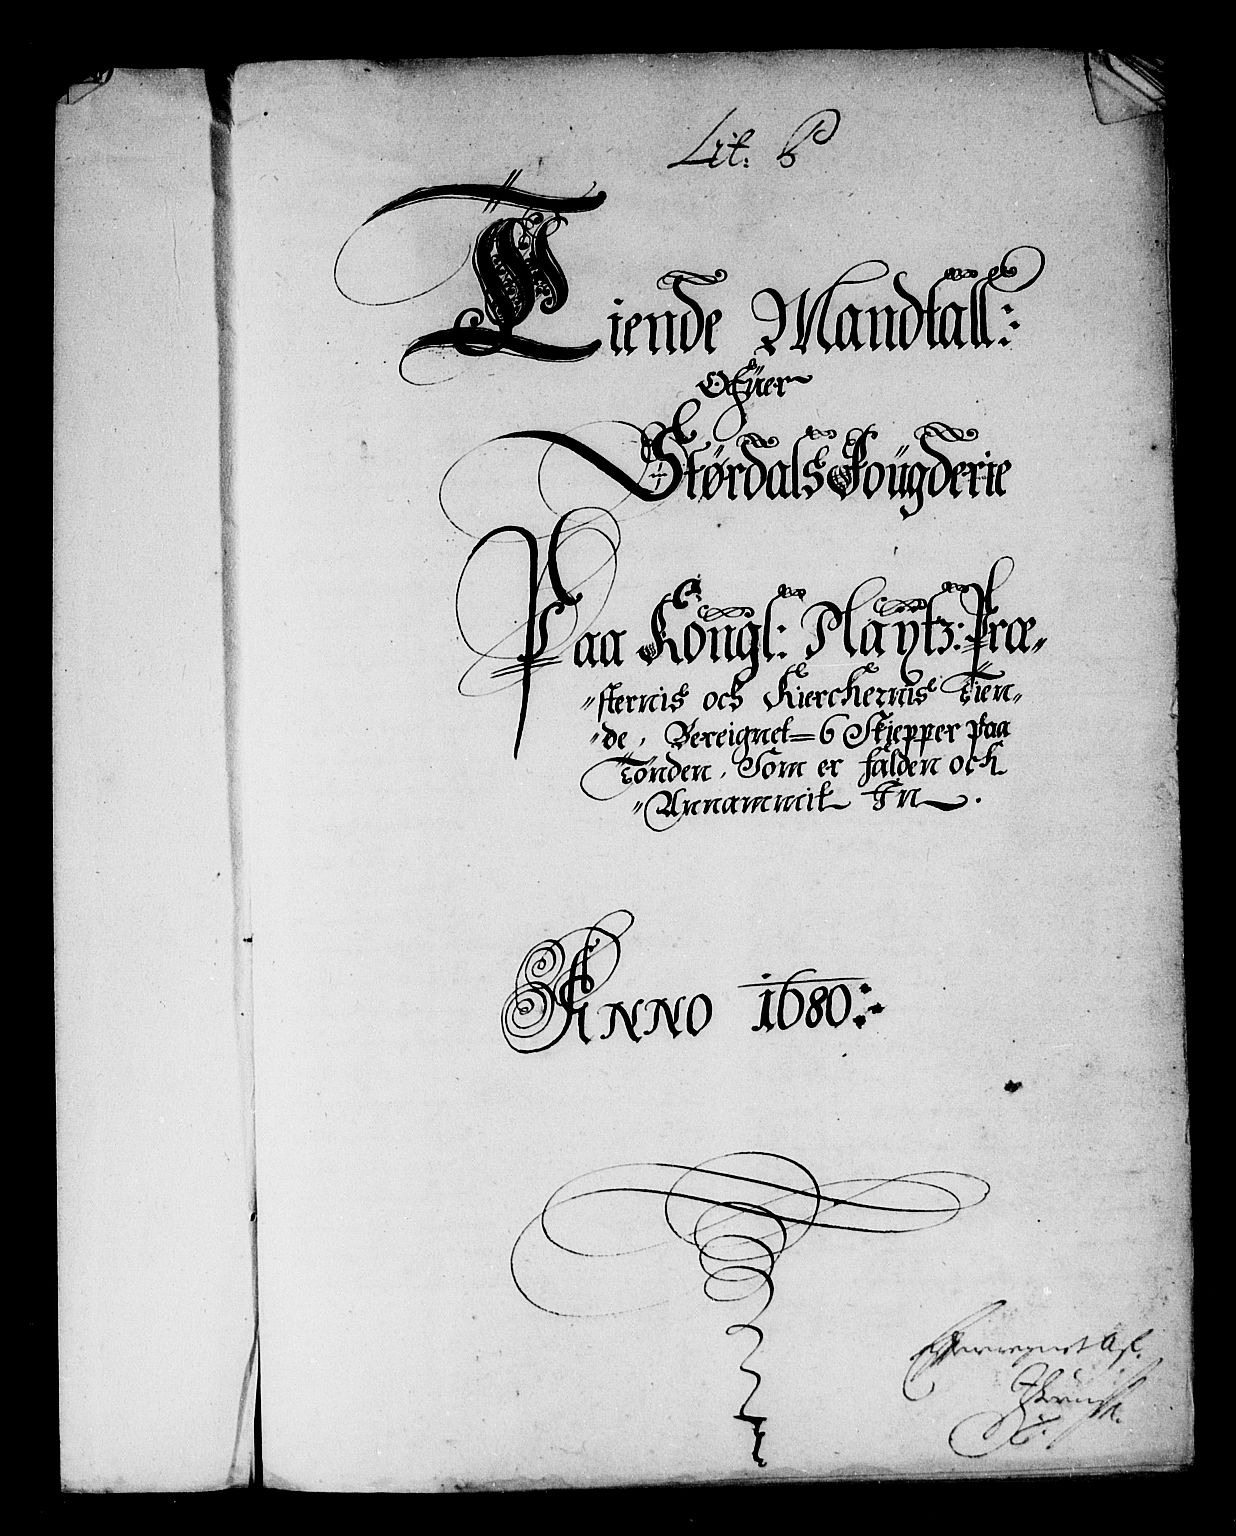 Lit: P
Tiende Mandtall:
Ofüer
Størdals Fougderie
Paa Kongl: Maÿtz: Præ-
sternis och Kierckernis Tien-
de, Bereignet 6 Skiepper paa
Tønden, Som er falden ock
Annammit In.
ANNO 1680
Efterregnet Af.